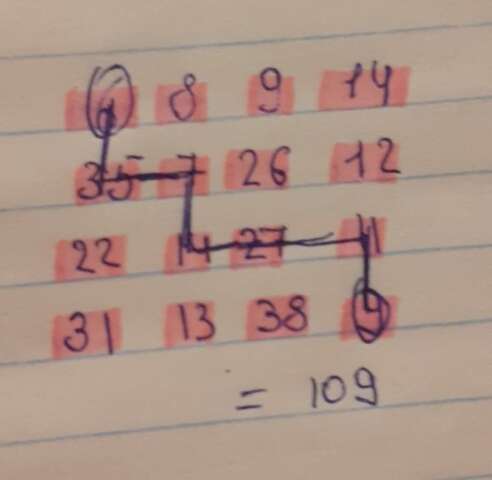 6 8 9 14
35 7 26 12
22 14 27 11
31 13 38 9
= 109